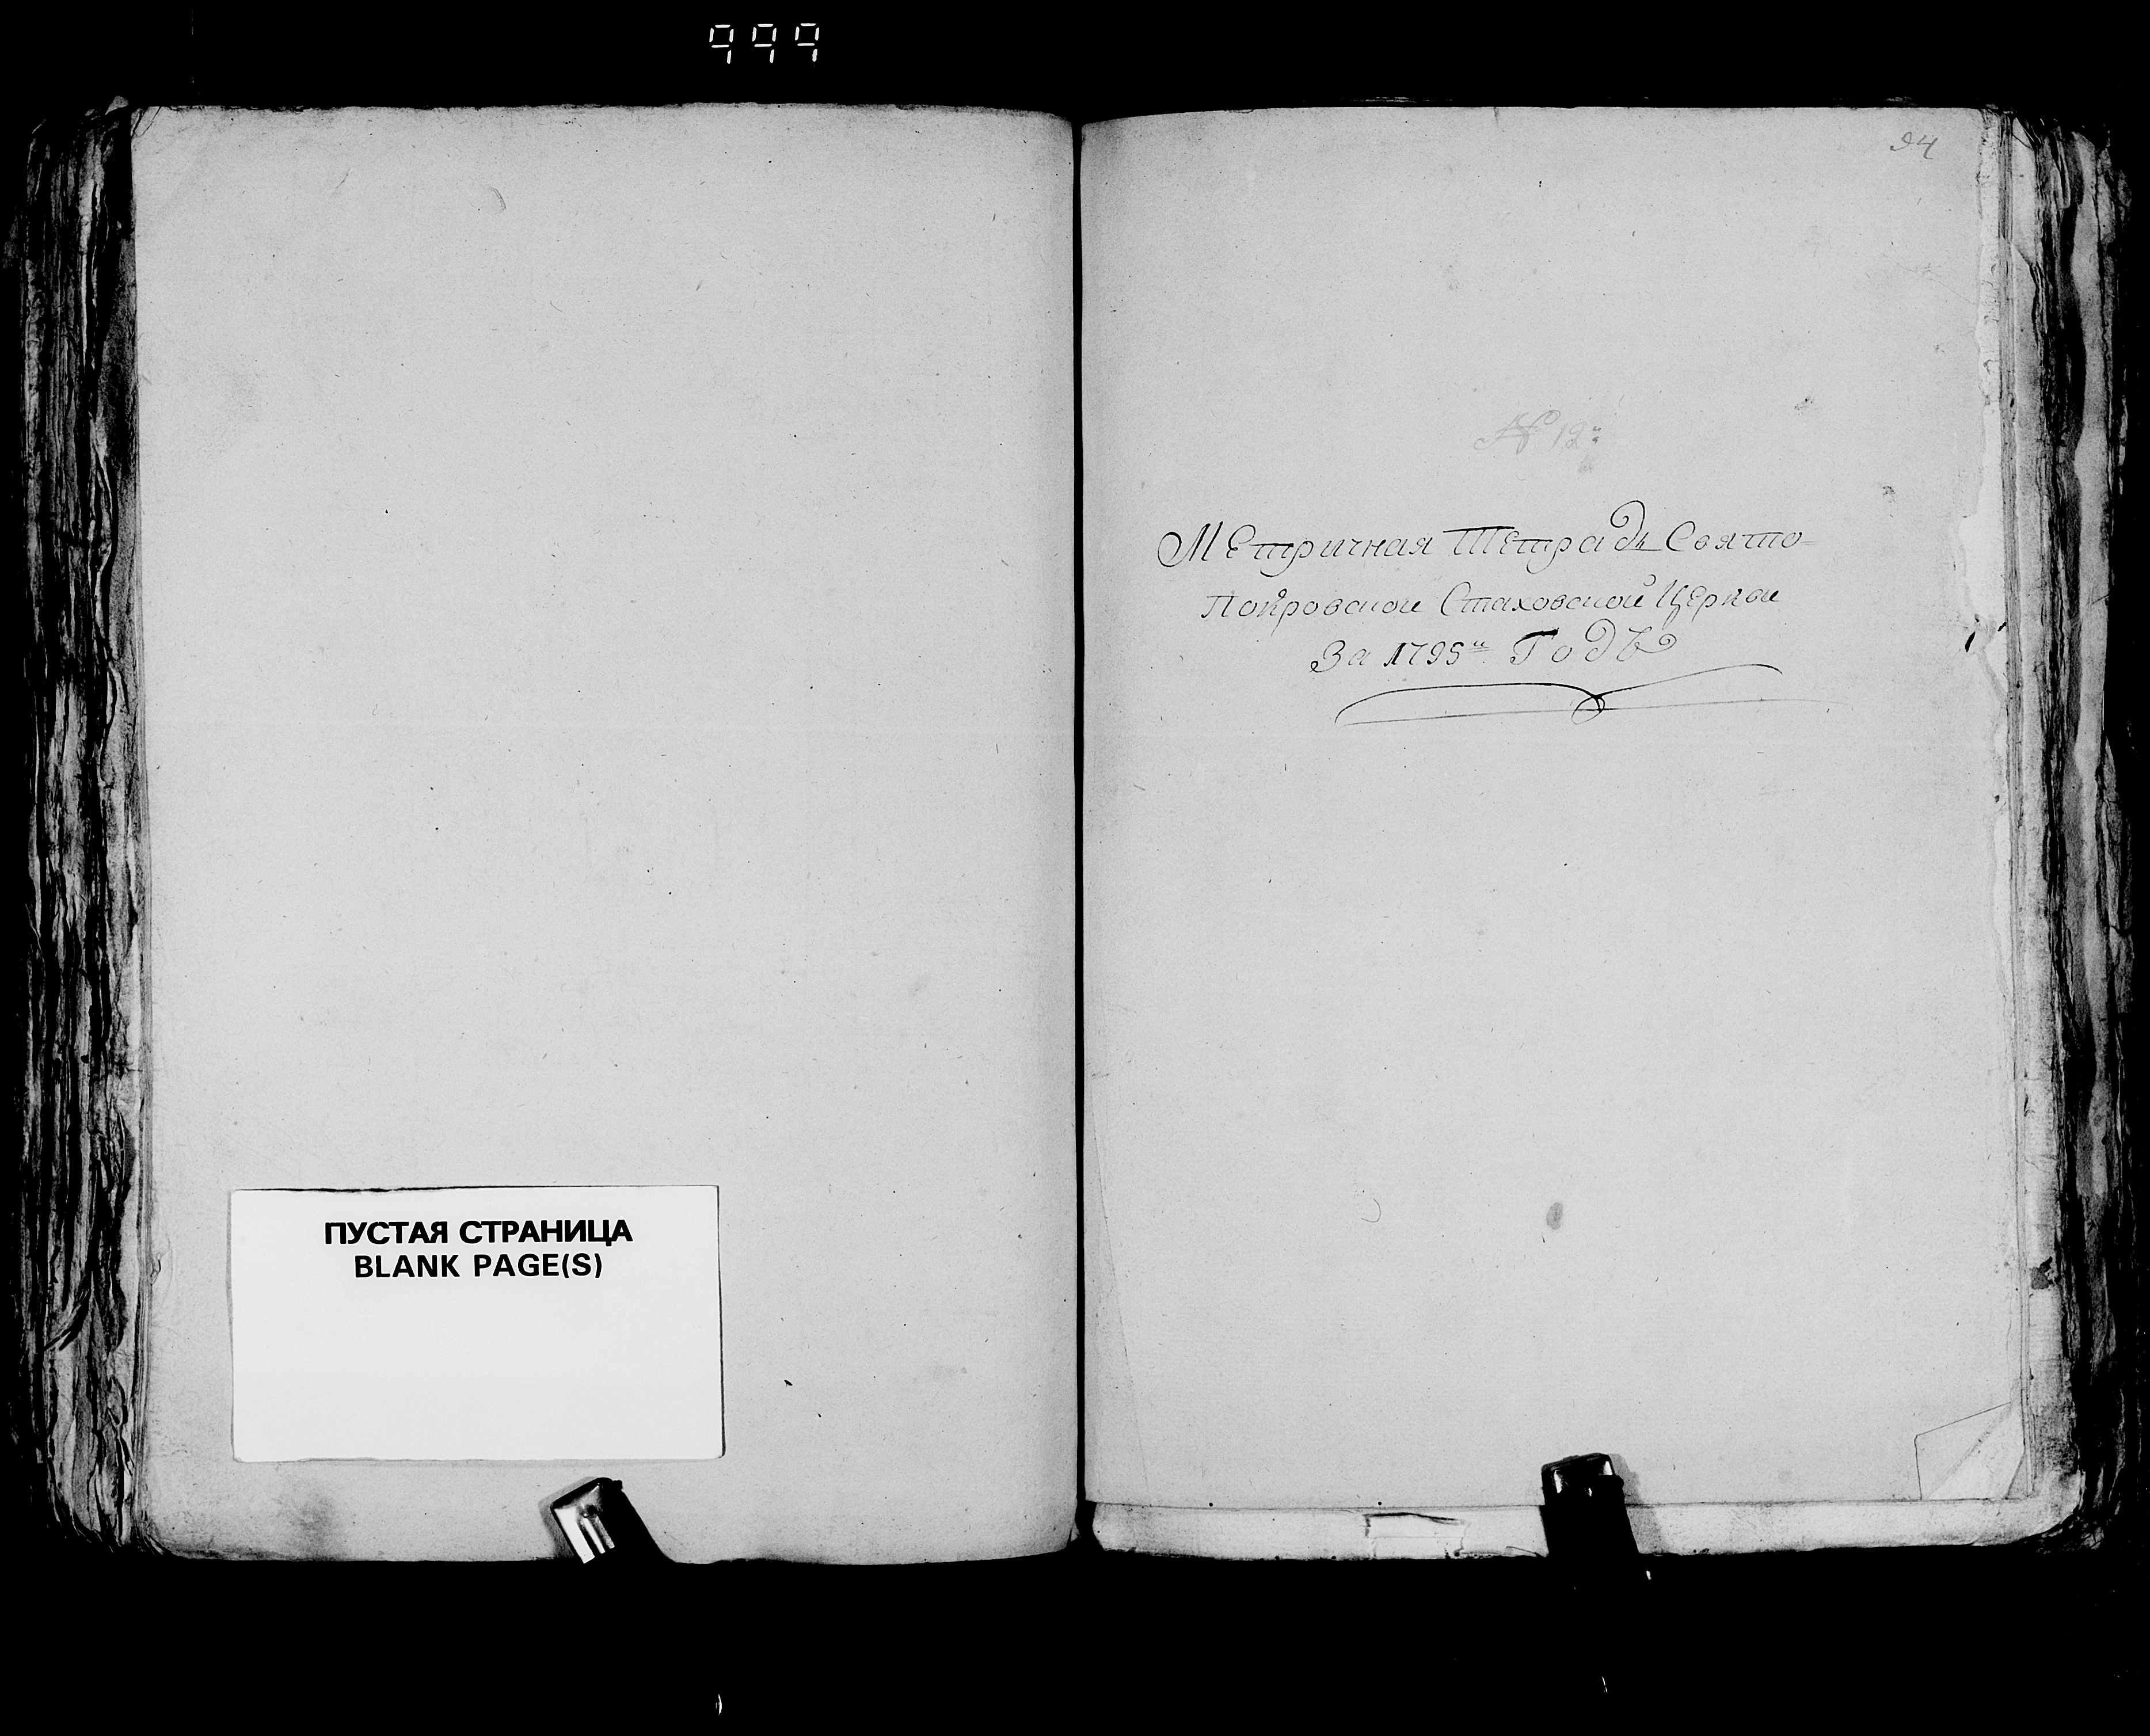 999
ПУСТАЯ СТРАНИЦА
BLANK PAGE(S)
94
№ 12й
Метричная Тетрадь Свято-
Покровской Стаховской Церкви
За 1795й Годъ